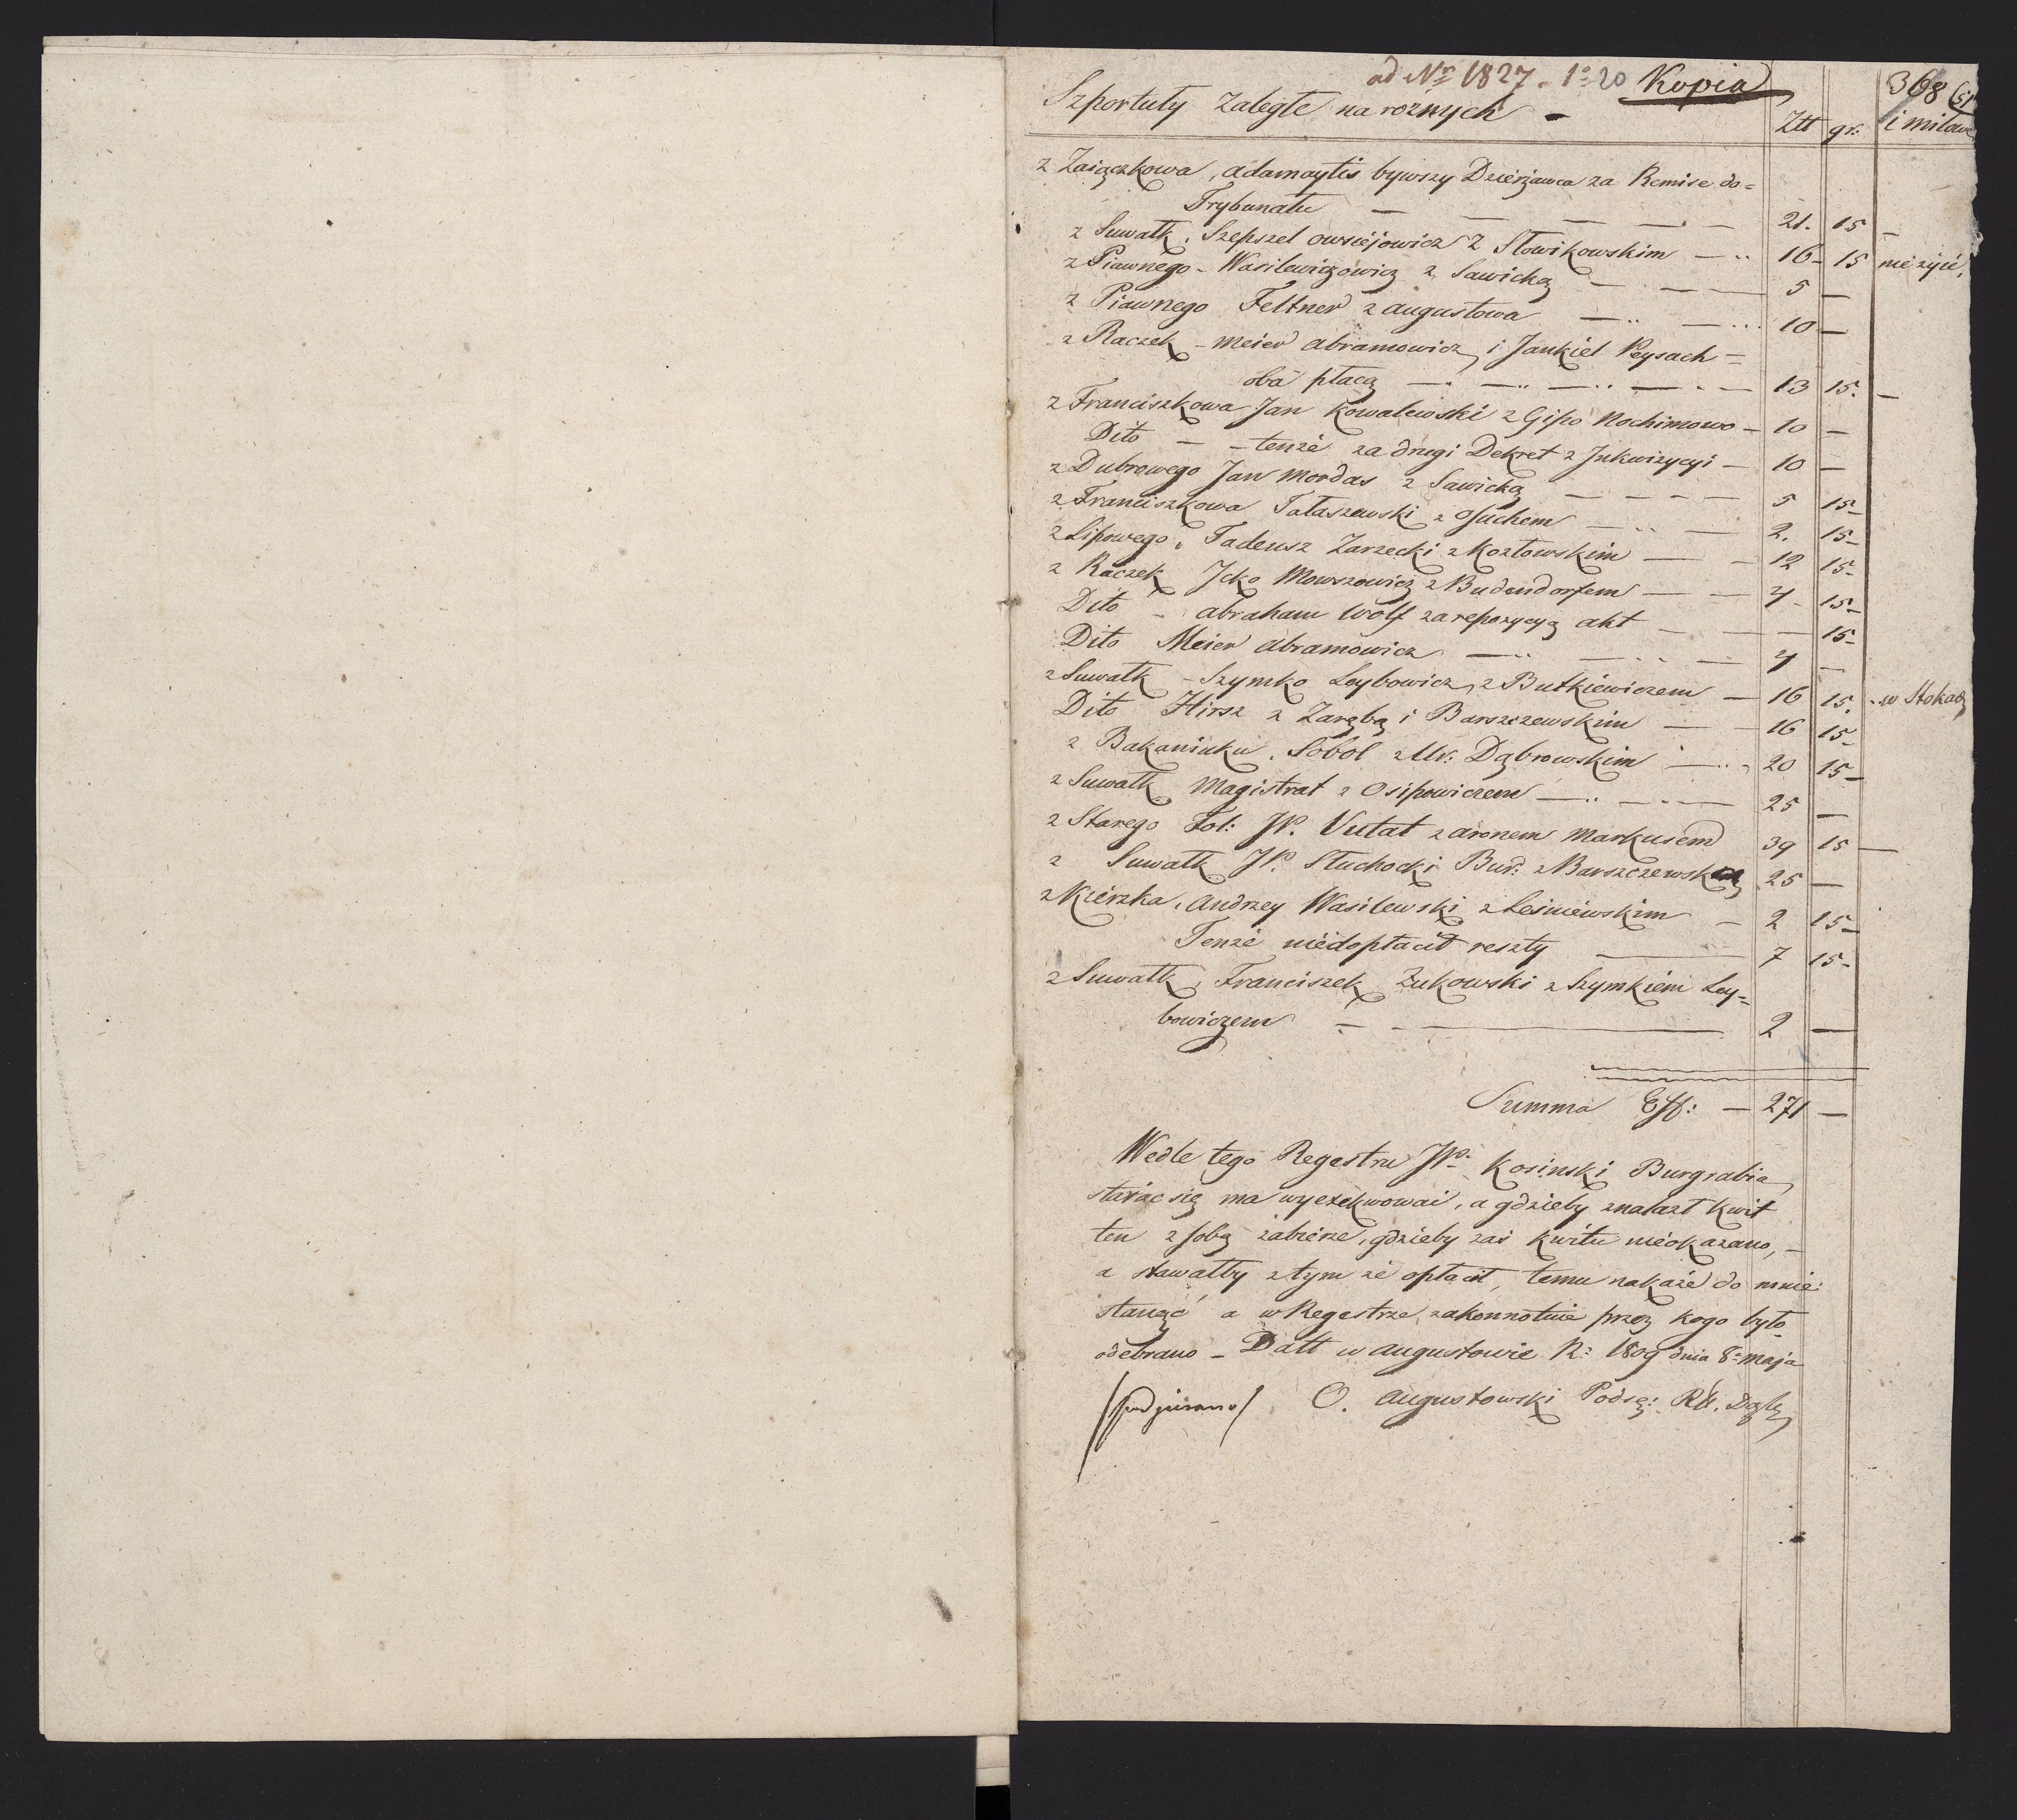 ad Nr 1827. 1°20 Kopia 368 51
Szportuły zaległe na rożnych - Złł gr: i milowe
z Zaiączkowa, Adamaytis bywszy Dzierżawca za Remise do=
Trybunału — — — — — 21. 15 —
z Suwałk, Szepszel Owsiejowicz z Słowikowskim — 16 — 15 nie żyie,
z Piawnego - Wasilewiczowicz z Sawicką — — 5 —
z Piawnego Feltner z Augustowa — — 10 —
z Raczek - Meier Abramowicz i Jankiel Peysach =
oba płacą — — — — — 13 15. —
z Franciszkowa Jan Kowalewski z Gipo Nochimowo — 10 —
Dito — - tenże za drugi Dekret z Jnkwizycyi — 10 —
z Dubrowego Jan Mordas z Sawicką — — — — 5 15 -
z Franciszkowa Tałaszewski z Osuchem — — 2. 15 -
z Lipowego, Tadeusz Zarzecki z Kozłowskim — — 12 15 -
z Raczek Jcko Mowszowicz z Budendorfem — — 4 - 15 -
Dito - Abraham Wolf za repozycyą akt — — — 15 -
Dito Meier Abramowicz — — — 4 —
z Suwałk - Szymko Leybowicz, z Butkiewiczem — 16 15. w Stokach
Dito Hirsz z Zarębą i Barszczewskim — — 16 15 -
z Bakaniuku, Sobol z Ur: Dąbrowskim — 20 15 -
z Suwałk Magistrat z Osipowiczem — — 25 —
z Starego Fol: JP. Vutat z Aronem Markusem 39 15 —
z Suwałk JP. Stuchocki Bur: z Barszczewską 25 —
z Kierzka, Andrzey Wasilewski z Leśniewskim — 2 15 -
Tenże niedopłacił reszty — 7 15 -
z Suwałk, Franciszek Zukowski z Szymkiem Ley=
bowiczem — — — 2 —
Summa Eff: — 271 —
Wedle tego Regestru JP. Kosinski Burgrabia
starac się ma wyexekwować, a gdzieby znalazł kwit
ten z sobą zabierze, gdzieby zaś kwitu nieokazano, —
a stawałby z tym że opłacił, temu nakaże do mnie
stanąć a w Regestrze zakonnotuie przez kogo było
odebrano — Datt w Augustowie R: 1809 dnia 8° Maja
/podpisano/ O. Augustowski Podsę: